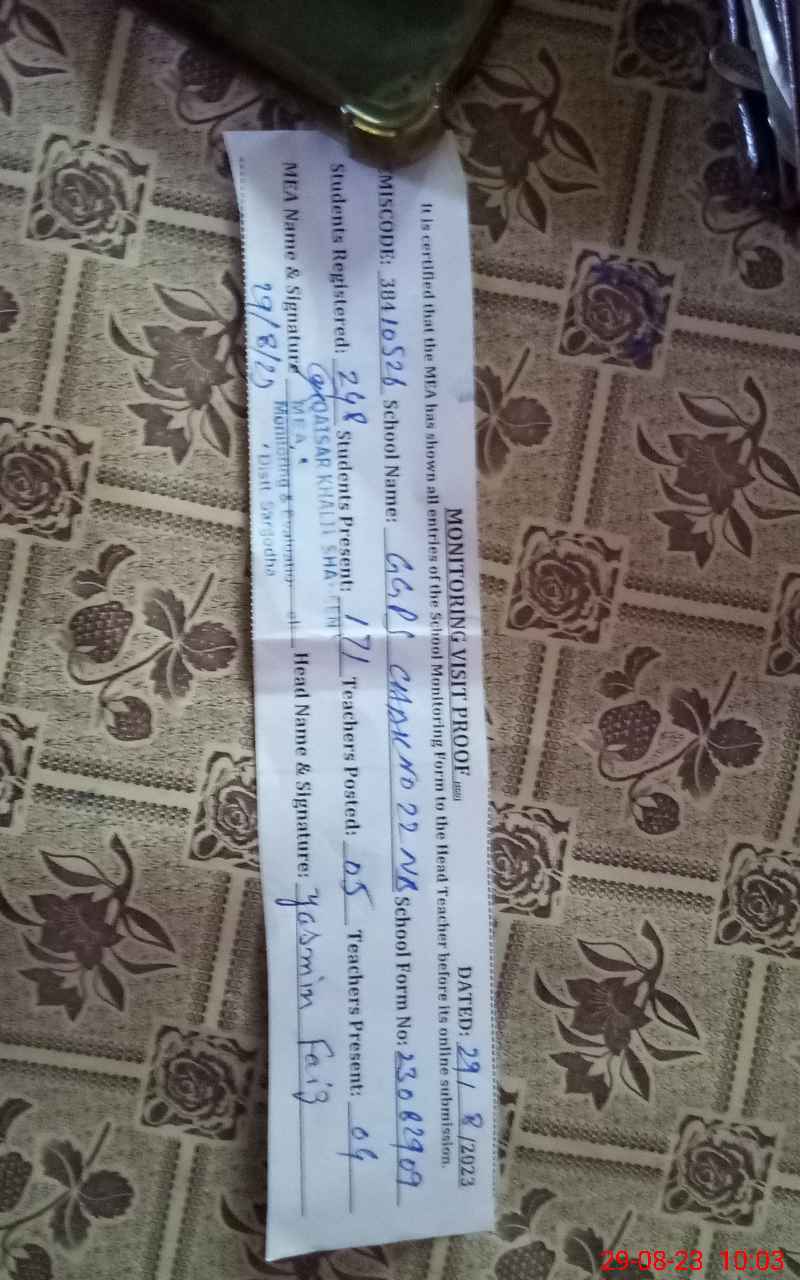 MONITORING VISIT PROOF
DATED: 29/8/2023
It is certified that the MEA has shown all entries of the School Monitoring Form to the Head Teacher before its online submission.
EMISCODE: 38410526 School Name: GGPS CHAK NO 22 NB School Form No: 23082909
Students Registered: 248 Students Present: 171 Teachers Posted: 05 Teachers Present: 04
MEA Name & Signature Head Name & Signature: Yasmin Faiz
QAISAR KHALIL
MEA
Monitoring &
Distt Sargodha
29/8/23
29-08-23 10:03